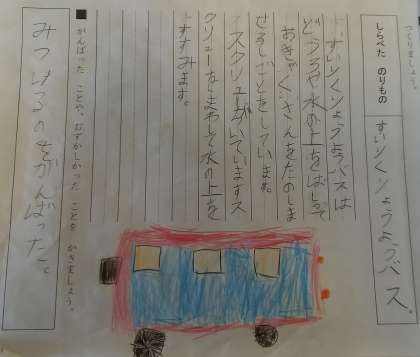 つくりましょう。
しらべた のりもの
すいりくりょうようバス。
すいりくりょうようバスは
どうろや水の上をはしって
おきゃくさんをたのしま
せるしごとをしています。
スクリューがついていますス
クリューをまわして水の上を
すすみます。
■ がんばった ことや、むずかしかった ことを かきましょう。
みつけるのをがんばった。